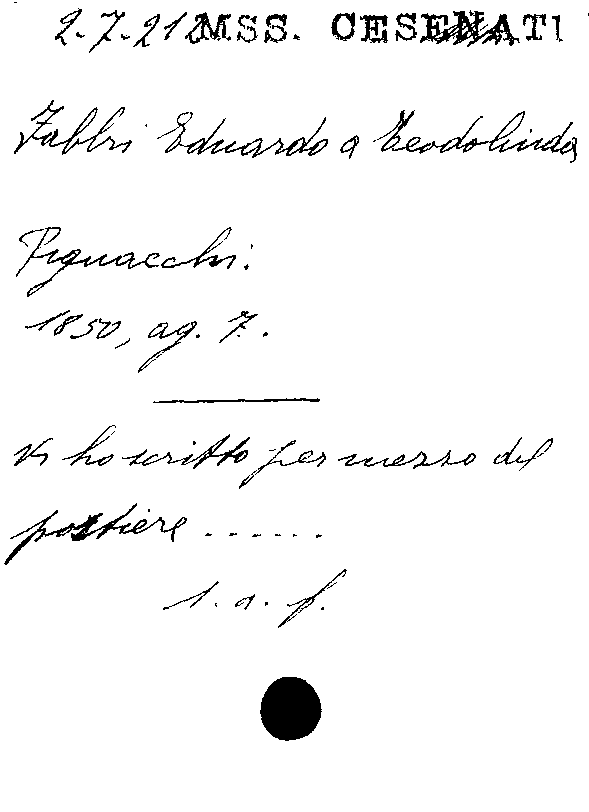 2-7-212 MSS. CESENATI
Fabbri Eduardo a Teodolinda
Pignacchi.
1850, ag. 7.
Vi ho scritto per mezzo del
postiere ......
1. a. f.